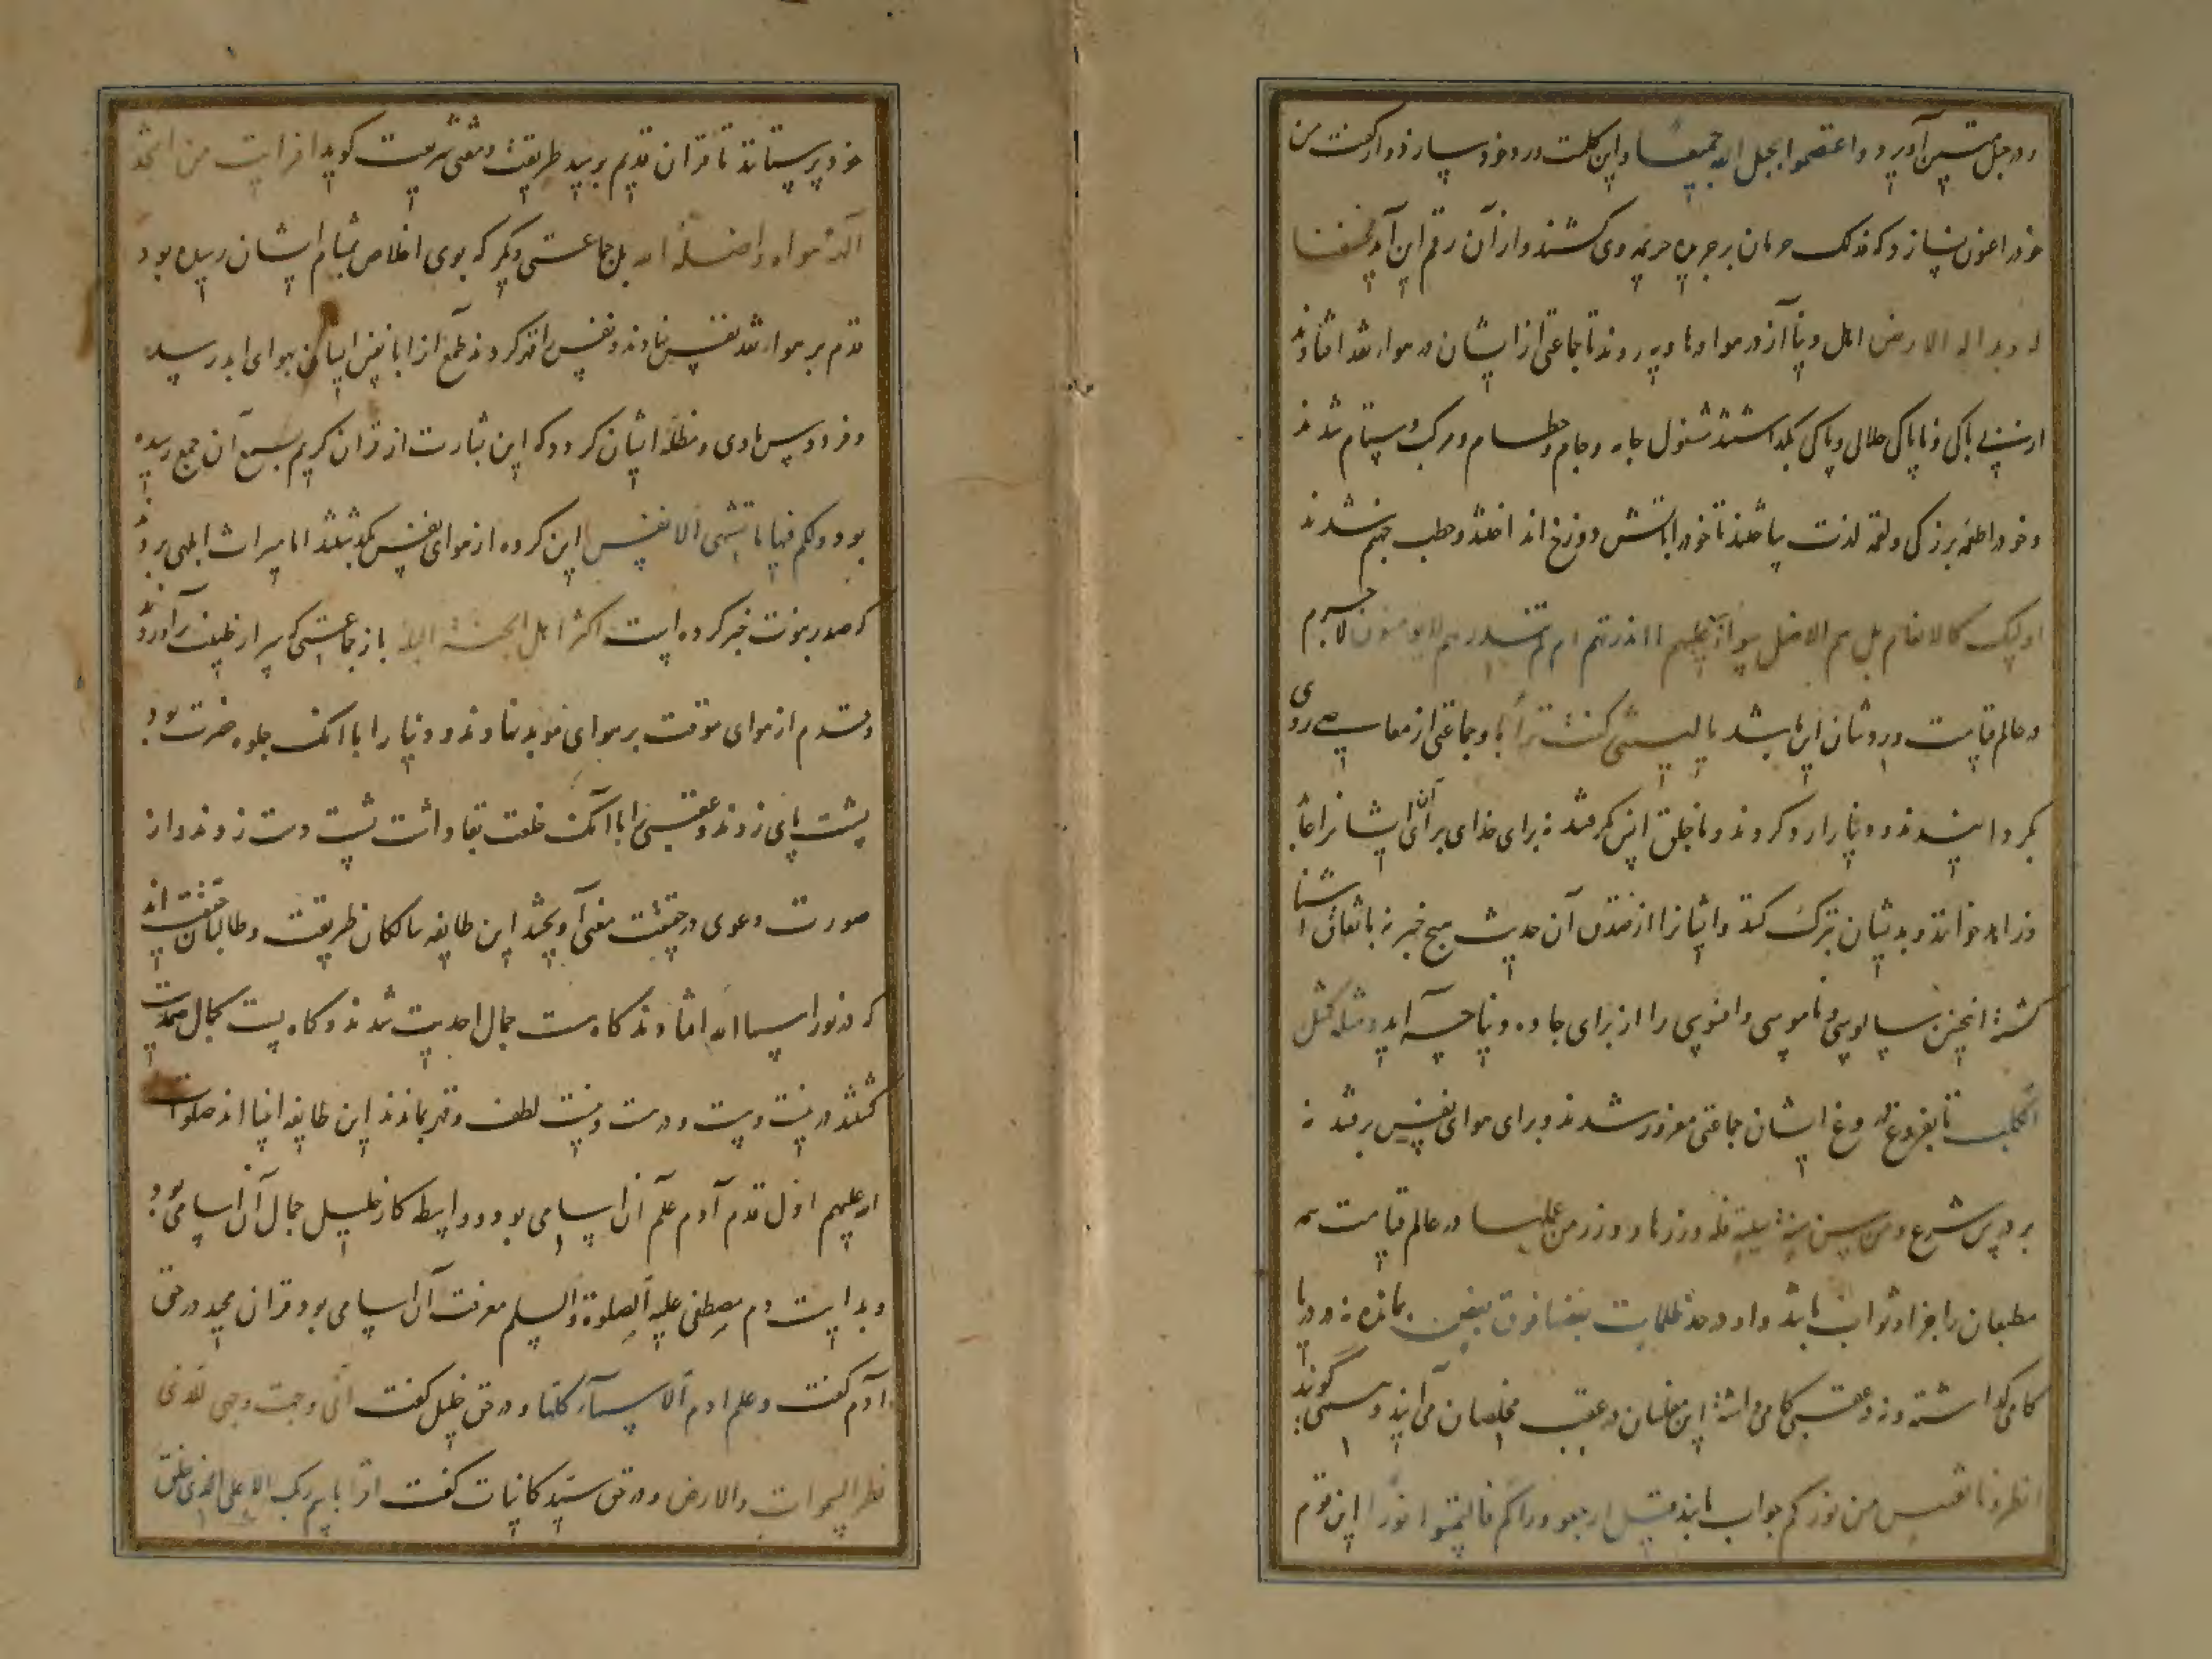 و در حبل متین آورد و واعتصموا بحبل الله جمیعا و این کلمت ورد خود سازد و ار کفت من
خود را عون نسازد که فذلک حرمان بر جریده جریمه وی کشند و از آن رقم این آید فخسفنا
به و بداره الارض اهل دنیا آز در هوا و هاویه روند تا جماعتی از ایشان در هوا نقد افتادند
از پاکی و ناپاکی حلال و پاکی بگذاشتند مشغول جامه و جام و طعام و مرکب و ستام شدند
و خود را طعمه برزکی و لقمه لذت ساختند تا خود را باتش دوزخ انداختند و حطب جهنم شدند
اولیک کالانعام بل هم الاضل سوآء علیهم اانذرتهم ام لم تنذرهم لایومنون لاجرم
در عالم قیامت ورد شان این باشد یا لیتنی کنت ترابا و جماعتی از معاصی روی
بکردانیدند و دنیا را رد کردند و با خلق انس کرفتند نه برای خدای برای آن تا ایشانرا عابد
و زاهد خوانند و بدیشان تبرک کنند و ایشانرا از صدق آن حدیث هیچ خبر نه با نفاق آشنا
کشته اینچنین سالوسی و ناموسی و افسوسی را از برای جاده دنیا چه آید و مثله کمثل
الکلب تا بفروغ دروغ ایشان جماعتی مغرور شدند و برای هوای نفس رفتند نه
بر درس شرع و من سن سنة سیئة فله وزرها و وزر من عمل بها در عالم قیامت همه
مطیعان را جزا و ثواب باشد و او در حد ظلمات بعضها فوق بعض بمانده نه در دنیا
کامی کذاشته و نه در عقبی کامی داشته این مفلسان در عقب مخلصان می آیند و می گویند
انظرونا نقتبس من نورکم جواب یابند قیل ارجعوا ورآکم فالتمسوا نورا این قوم
خود پرستانند تا قران قدیم بر سد طریقت و مفتی شریعت کوید افرایت من اتخذ
الهه هواه و اضله الله بل جماعتی دیکر که بوی اخلاص بمشام ایشان رسیده بود
قدم بر هوا نقد نفس نهادند و نفس را قهر کردند طمع از ابا نفس ایشان بهوای ابد رسید
و فردوس ماوی و مظله ایشان کردد که این بشارت از قران کریم بسمع آن جمع رسیده
بود و لکم فیها ما تشتهی الانفس این کروه از هوای نفس بگذشتند اما میراث ابلهی بردند
که صدر نبوت خبر کرده است اکثر اهل الجنة البله باز جماعتی که سر از طینت برآوردند
و قدم از هوای موقت بر هوای موبد نهادند و دنیا را با آنک جلوه خضرت بود
پشت پای زدند و عقبی را با آنک خلعت بقا داشت پشت دست زدند و از
صورت دعوی در حقیقت معنی آویختند این طایفه سالکان طریقت و طالبان حقیقت اند
که در نور اسما الله افتادند کاه مست جمال احدیت شدند و کاه پست کمال صمدیت
کشتند در نیست و پست و درست و نیست لطف و قهر بماندند این طایفه انبیا اند صلوات
الله علیهم اول قدم آدم علم آن اسامی بود و واسطه کار خلیل جمال آن اسامی بود
و بدایت دم مصطفی علیه الصلوة والسلم معرفت آن اسامی بود و قران مجید در حق
آدم کفت و علم ادم الاسمآء کلها و در حق خلیل کفت انی وجهت وجهی للذی
فطر السموات والارض و در حق سید کاینات کفت اقرا باسم ربک الاعلی الذی خلق